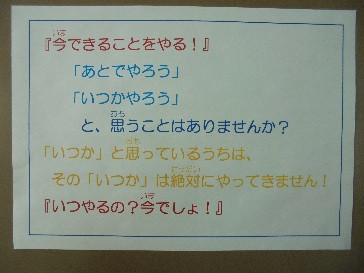 『今できることをやる！』
「あとでやろう」
「いつかやろう」
と、思うことはありませんか？
「いつか」と思っているうちは、
その「いつか」は絶対にやってきません！
『いつやるの？今でしょ！』